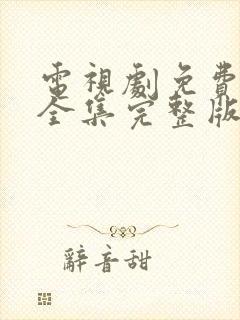 電視劇免費
全集完整版
辭音甜